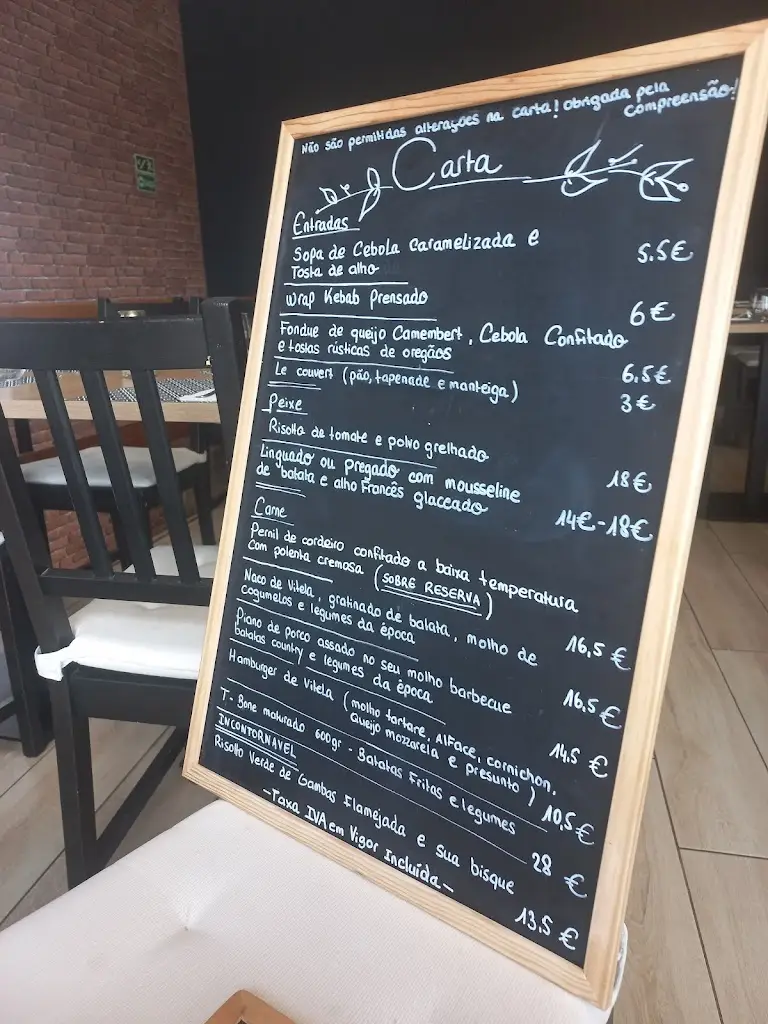 Não são permitidas alterações na carta! obrigada pela
compreensão!
Carta
Entradas
Sopa de Cebola caramelizada e
Tosta de alho 5.5€
Wrap Kebab Prensado 6€
Fondue de queijo Camembert, Cebola Confitado
e tostas rústicas de oregãos 6.5€
Le couvert (pão, tapenade e manteiga) 3€
Peixe
Risotto de tomate e polvo grelhado 18€
Linguado ou Pregado com mousseline
de batata e alho Francês glaceado 14€-18€
Carne
Pernil de cordeiro confitado a baixa temperatura
com polenta cremosa (SOBRE RESERVA) 16,5€
Naco de Vitela, gratinado de batata, molho de
cogumelos e legumes da época 16.5€
Piano de porco assado no seu molho barbecue
batatas country e legumes da época 14.5€
Hamburger de Vitela (molho tartare, Alface, cornichon,
Queijo mozzarela e presunto) 10,5€
T. Bone maturado 600gr - Batatas Fritas e legumes 28€
INCONTORNAVEL
Risotto Verde de Gambas Flamejada e sua bisque 13.5€
-Taxa IVA em Vigor Incluída-